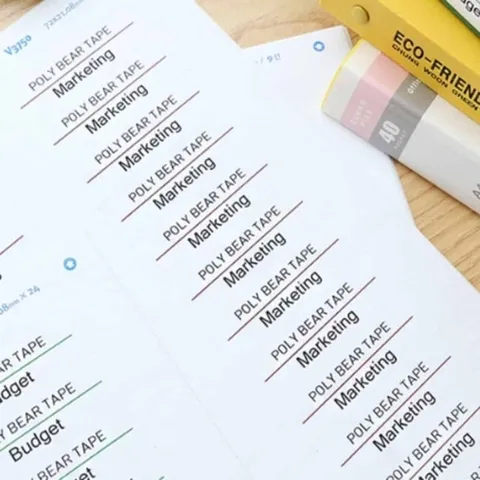 V3750
POLY BEAR TAPE
Marketing
POLY BEAR TAPE
Marketing
POLY BEAR TAPE
Marketing
POLY BEAR TAPE
Marketing
POLY BEAR TAPE
Marketing
POLY BEAR TAPE
Marketing
POLY BEAR TAPE
Marketing
POLY BEAR TAPE
Marketing
POLY BEAR TAPE
Marketing
POLY BEAR TAPE
Marketing
POLY BEAR TAPE
Marketing
08mm × 24
AR TAPE
dget
BEAR TAPE
Budget
BEAR TAPE
dget
ECO-FRIEND
CHUNG WOON GREEN
40